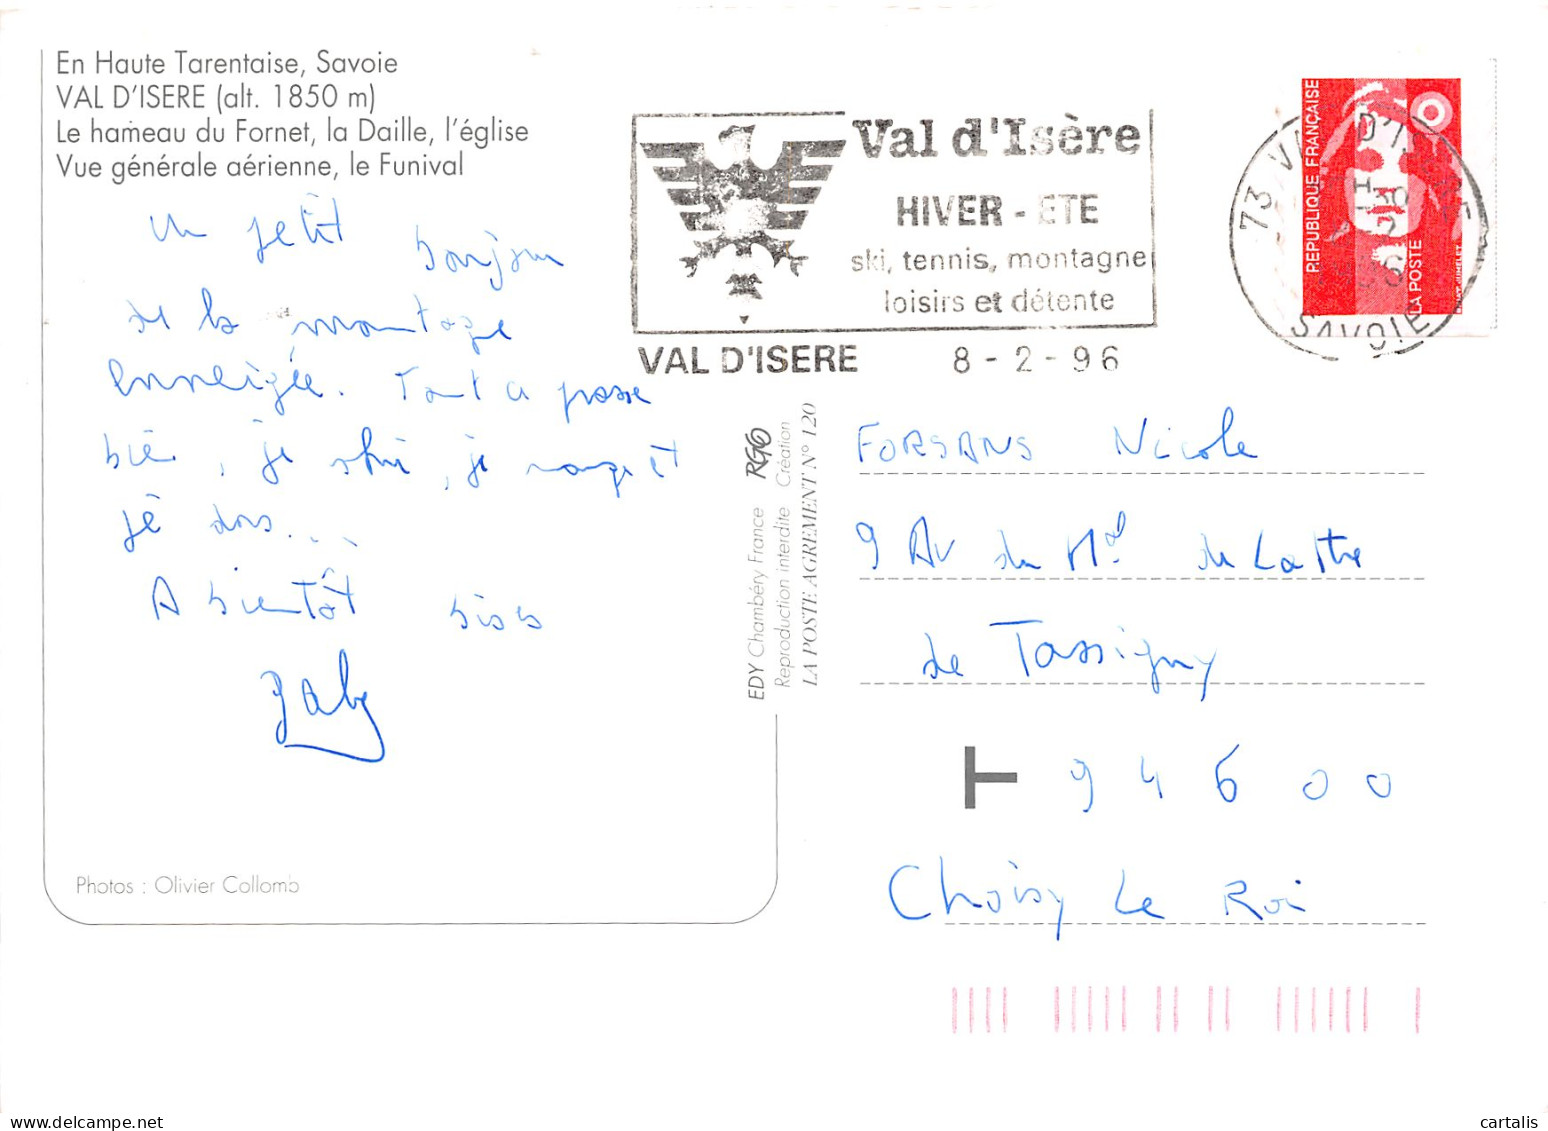 En Haute Tarentaise, Savoie
VAL D'ISERE (alt. 1850 m)
Le hameau du Fornet, la Daille, l'église
Vue générale aérienne, le Funival
Un petit bonjour
de la montagne
enneigée. Tout a passe
bien, je skie, je mange et
je dors...
A bientôt bises
Gaby
Photos : Olivier Collomb
EDY Chambéry France RGO
Reproduction interdite Création
LA POSTE AGREMENT N° 120
Val d'Isère
HIVER - ETE
ski, tennis, montagne
loisirs et détente
VAL D'ISERE 8-2-96
REPUBLIQUE FRANÇAISE
LA POSTE
73 VAL D'ISERE
SAVOIE
FORSANS Nicole
9 Av du Mal de Lattre
de Tassigny
T 94600
Choisy Le Roi
cartalis